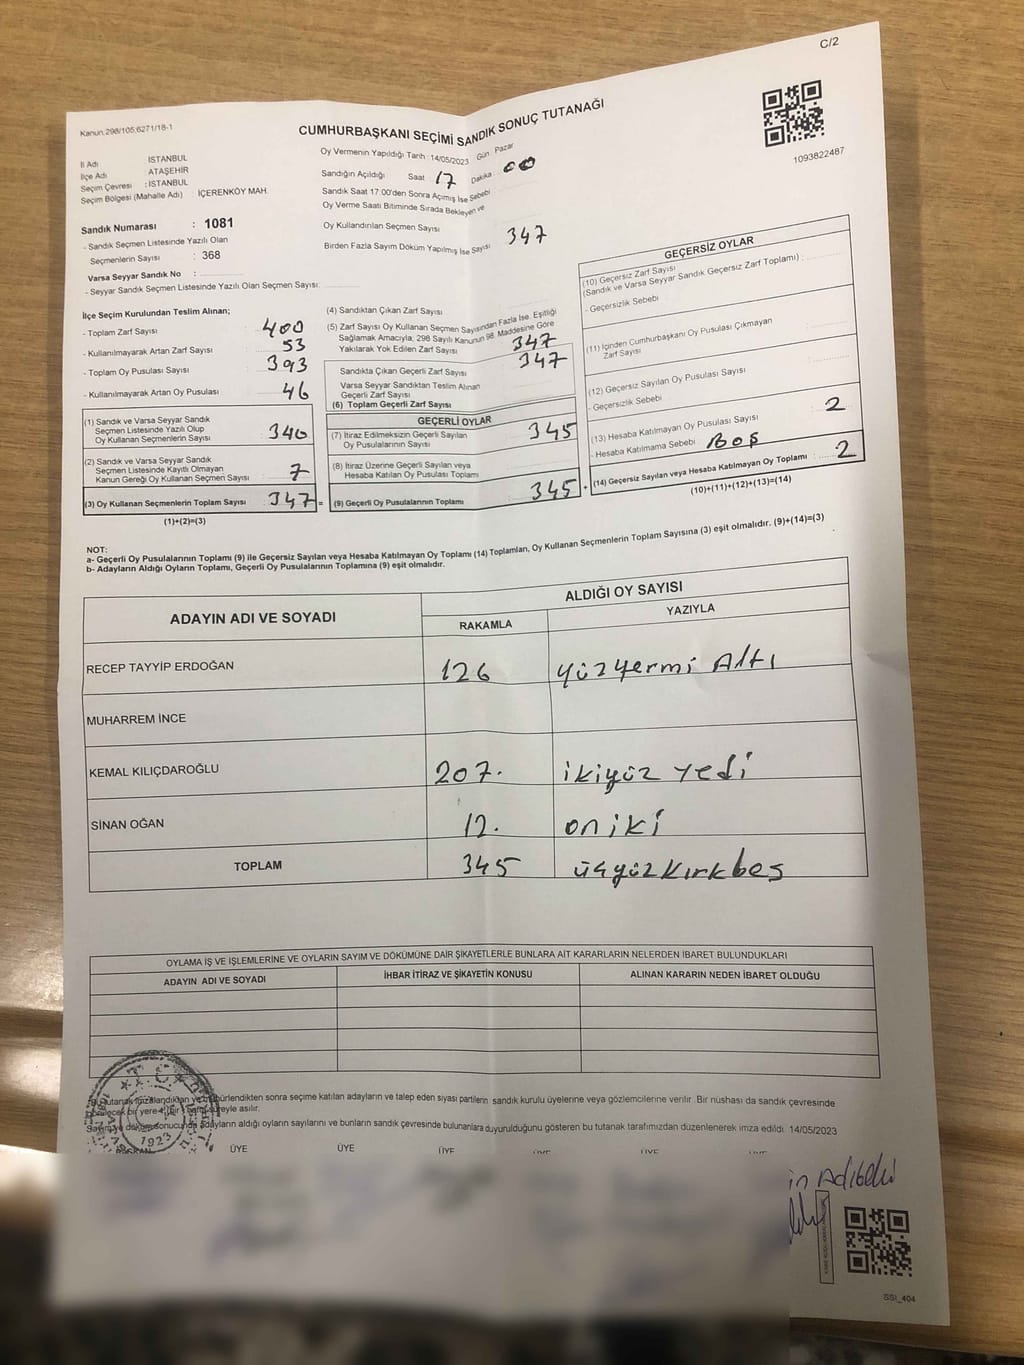 C/2
Kanun.298/105;6271/18-1
CUMHURBAŞKANI SEÇİMİ SANDIK SONUÇ TUTANAĞI
1093822487
İl Adı İSTANBUL
İlçe Adı ATAŞEHİR
Seçim Çevresi : İSTANBUL
Seçim Bölgesi (Mahalle Adı) : İÇERENKÖY MAH.
Sandık Numarası : 1081
- Sandık Seçmen Listesinde Yazılı Olan
Seçmenlerin Sayısı : 368
Varsa Seyyar Sandık No :
- Seyyar Sandık Seçmen Listesinde Yazılı Olan Seçmen Sayısı:
Oy Vermenin Yapıldığı Tarih :14/05/2023 Gün: Pazar
Sandığın Açıldığı Saat 17 Dakika 00
Sandık Saat 17:00'den Sonra Açılmış İse Sebebi
Oy Verme Saati Bitiminde Sırada Bekleyen ve
Oy Kullandırılan Seçmen Sayısı 347
Birden Fazla Sayım Döküm Yapılmış İse Sayısı
İlçe Seçim Kurulundan Teslim Alınan;
- Toplam Zarf Sayısı 400
- Kullanılmayarak Artan Zarf Sayısı 53
- Toplam Oy Pusulası Sayısı 393
- Kullanılmayarak Artan Oy Pusulası 46
(1) Sandık ve Varsa Seyyar Sandık
Seçmen Listesinde Yazılı Olup
Oy Kullanan Seçmenlerin Sayısı 340
(2) Sandık ve Varsa Seyyar Sandık
Seçmen Listesinde Kayıtlı Olmayan
Kanun Gereği Oy Kullanan Seçmen Sayısı 7
(3) Oy Kullanan Seçmenlerin Toplam Sayısı 347 =
(1)+(2)=(3)
(4) Sandıktan Çıkan Zarf Sayısı
(5) Zarf Sayısı Oy Kullanan Seçmen Sayısından Fazla İse, Eşitliği
Sağlamak Amacıyla, 298 Sayılı Kanunun 98. Maddesine Göre
Yakılarak Yok Edilen Zarf Sayısı 347
Sandıkta Çıkan Geçerli Zarf Sayısı 347
Varsa Seyyar Sandıktan Teslim Alınan
Geçerli Zarf Sayısı
(6) Toplam Geçerli Zarf Sayısı
GEÇERLİ OYLAR
(7) İtiraz Edilmeksizin Geçerli Sayılan
Oy Pusulalarının Sayısı 345
(8) İtiraz Üzerine Geçerli Sayılan veya
Hesaba Katılan Oy Pusulası Toplamı
(9) Geçerli Oy Pusulalarının Toplamı 345 +
GEÇERSİZ OYLAR
(10) Geçersiz Zarf Sayısı
(Sandık ve Varsa Seyyar Sandık Geçersiz Zarf Toplamı) :
- Geçersizlik Sebebi
(11) İçinden Cumhurbaşkanı Oy Pusulası Çıkmayan
Zarf Sayısı
(12) Geçersiz Sayılan Oy Pusulası Sayısı
- Geçersizlik Sebebi
(13) Hesaba Katılmayan Oy Pusulası Sayısı 2
- Hesaba Katılmama Sebebi BOŞ
(14) Geçersiz Sayılan veya Hesaba Katılmayan Oy Toplamı : 2
(10)+(11)+(12)+(13)=(14)
NOT:
a- Geçerli Oy Pusulalarının Toplamı (9) ile Geçersiz Sayılan veya Hesaba Katılmayan Oy Toplamı (14) Toplamları, Oy Kullanan Seçmenlerin Toplam Sayısına (3) eşit olmalıdır. (9)+(14)=(3)
b- Adayların Aldığı Oyların Toplamı, Geçerli Oy Pusulalarının Toplamına (9) eşit olmalıdır.
ADAYIN ADI VE SOYADI ALDIĞI OY SAYISI
RAKAMLA YAZIYLA
RECEP TAYYİP ERDOĞAN 126 yüzyermi Altı
MUHARREM İNCE
KEMAL KILIÇDAROĞLU 207. ikiyüz yedi
SİNAN OĞAN 12. on iki
TOPLAM 345 üçyüzkırkbeş
OYLAMA İŞ VE İŞLEMLERİNE VE OYLARIN SAYIM VE DÖKÜMÜNE DAİR ŞİKAYETLERLE BUNLARA AİT KARARLARIN NELERDEN İBARET BULUNDUKLARI
ADAYIN ADI VE SOYADI İHBAR İTİRAZ VE ŞİKAYETİN KONUSU ALINAN KARARIN NEDEN İBARET OLDUĞU
T.C.
1923
Bu tutanak imzalandıktan ve mühürlendikten sonra seçime katılan adayların ve talep eden siyasi partilerin sandık kurulu üyelerine veya gözlemcilerine verilir. Bir nüshası da sandık çevresinde
bir yere süreyle asılır.
sonucunda adayların aldığı oyların sayılarını ve bunların sandık çevresinde bulunanlara duyurulduğunu gösteren bu tutanak tarafımızdan düzenlenerek imza edildi. 14/05/2023
BAŞKAN ÜYE ÜYE ÜYE ÜYE ÜYE ÜYE
SSI_404